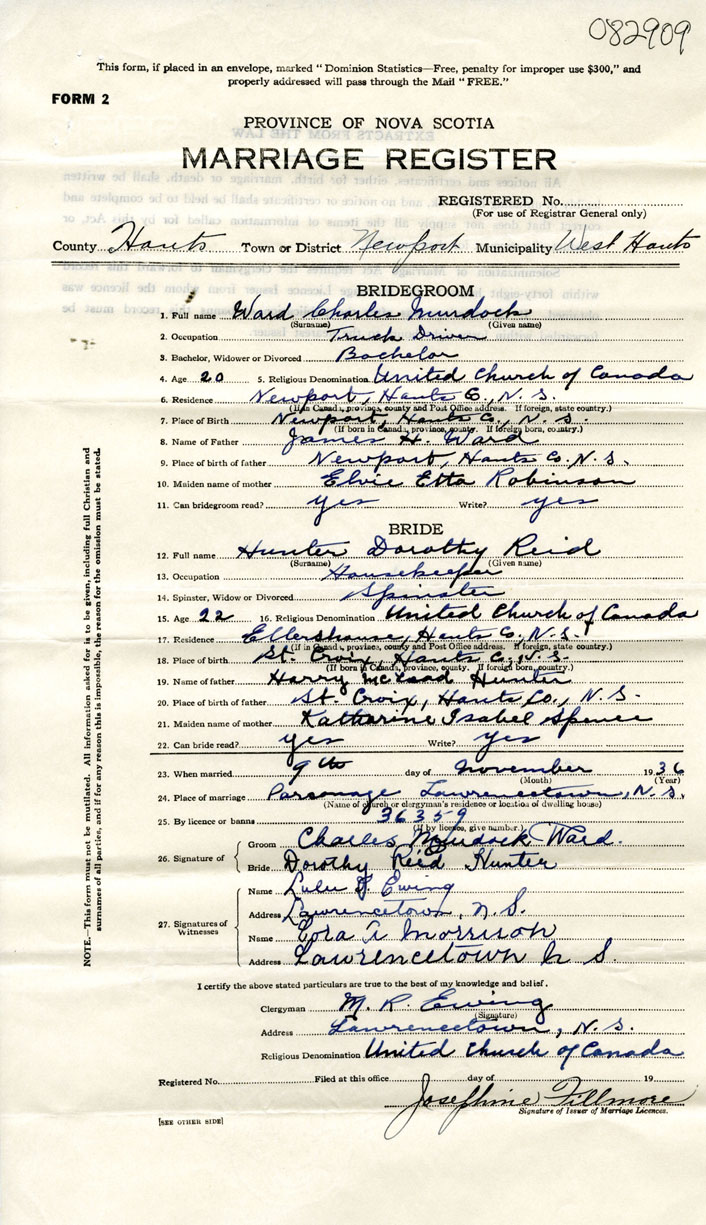 082909
This form, if placed in an envelope, marked "Dominion Statistics—Free, penalty for improper use $300," and
properly addressed will pass through the Mail "FREE."
FORM 2
PROVINCE OF NOVA SCOTIA
MARRIAGE REGISTER
REGISTERED No.
(For use of Registrar General only)
County Hants Town or District Newport Municipality West Hants
BRIDEGROOM
1. Full name Ward Charles Murdock
(Surname) (Given name)
2. Occupation Truck Driver
3. Bachelor, Widower or Divorced Bachelor
4. Age 20 5. Religious Denomination United Church of Canada
6. Residence Newport, Hants Co., N. S.
(If in Canada, province, county and Post Office address. If foreign, state country.)
7. Place of Birth Newport, Hants Co., N. S.
(If born in Canada, province, county. If foreign born, country.)
8. Name of Father James H. Ward
9. Place of birth of father Newport, Hants Co. N. S.
10. Maiden name of mother Elvie Etta Robinson
11. Can bridegroom read? yes Write? yes
BRIDE
12. Full name Hunter Dorothy Reid
(Surname) (Given name)
13. Occupation Housekeeper
14. Spinster, Widow or Divorced Spinster
15. Age 22 16. Religious Denomination United Church of Canada
17. Residence Ellershouse, Hants Co., N. S.
(If in Canada, province, county and Post Office address. If foreign, state country.)
18. Place of birth St. Croix, Hants Co., N. S.
(If born in Canada, province, county. If foreign born, country.)
19. Name of father Harry McLead Hunter
20. Place of birth of father St. Croix, Hants Co., N. S.
21. Maiden name of mother Katharine Isabel Spence
22. Can bride read? yes Write? yes
23. When married 9th day of November 1936
(Month) (Year)
24. Place of marriage Parsonage Lawrencetown, N. S.
(Name of church or clergyman's residence or location of dwelling house)
25. By licence or banns 36359
(If by licence, give number.)
26. Signature of
Groom Charles Murdock Ward.
Bride Dorothy Reid Hunter
27. Signatures of Witnesses
Name Lulu J. Ewing
Address Lawrencetown, N. S.
Name Cora A Morrison
Address Lawrencetown N S.
I certify the above stated particulars are true to the best of my knowledge and belief.
Clergyman M. R. Ewing
(Signature)
Address Lawrencetown, N. S.
Religious Denomination United Church of Canada
Registered No. Filed at this office day of 19
Josephine Fillmore
Signature of Issuer of Marriage Licences.
[SEE OTHER SIDE]
NOTE.—This form must not be mutilated. All information asked for is to be given, including full Christian and
surnames of all parties, and if for any reason this is impossible, the reason for the omission must be stated.